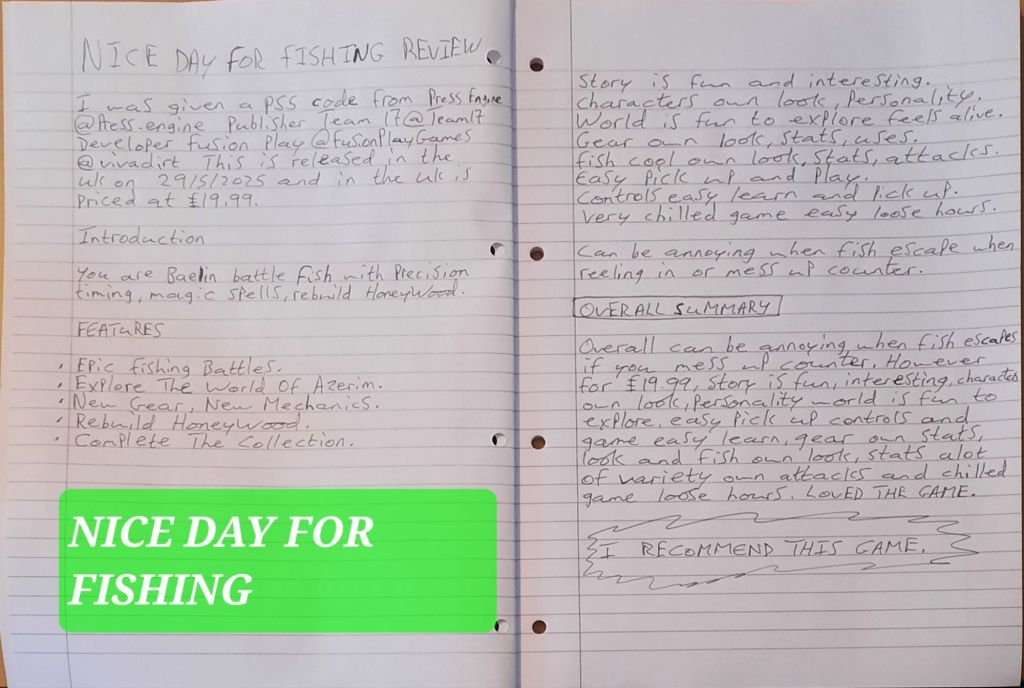 NICE DAY FOR FISHING REVIEW
I was given a PS5 code from Press Engine
@Press.engine Publisher Team 17@Team17
Developer fusion Play@fusionPlayGames
@vivadirt This is released in the
uk on 29/5/2025 and in the uk is
Priced at £19.99.
Introduction
You are Baelin battle fish with Precision
timing, magic spells, rebuild HoneyWood.
FEATURES
• Epic fishing Battles.
• Explore The World Of Azerim.
• New Gear, New Mechanics.
• Rebuild HoneyWood.
• Complete The Collection.
NICE DAY FOR
FISHING
Story is fun and interesting.
Characters own look, Personality.
World is fun to explore feels alive.
Gear own look, stats, uses.
fish cool own look, stats, attacks.
Easy Pick up and Play.
Controls easy learn and Pick up.
Very chilled game easy loose hours.
Can be annoying when fish escape when
reeling in or mess up counter.
OVERALL SUMMARY
Overall can be annoying when fish escapes
if you mess up counter. However
for £19.99, Story is fun, interesting, character
own look, Personality world is fun to
explore, easy Pick up controls and
game easy learn, gear own stats,
look and fish own look, stats alot
of variety own attacks and chilled
game loose hours. LOVED THE GAME.
I RECOMMEND THIS GAME.